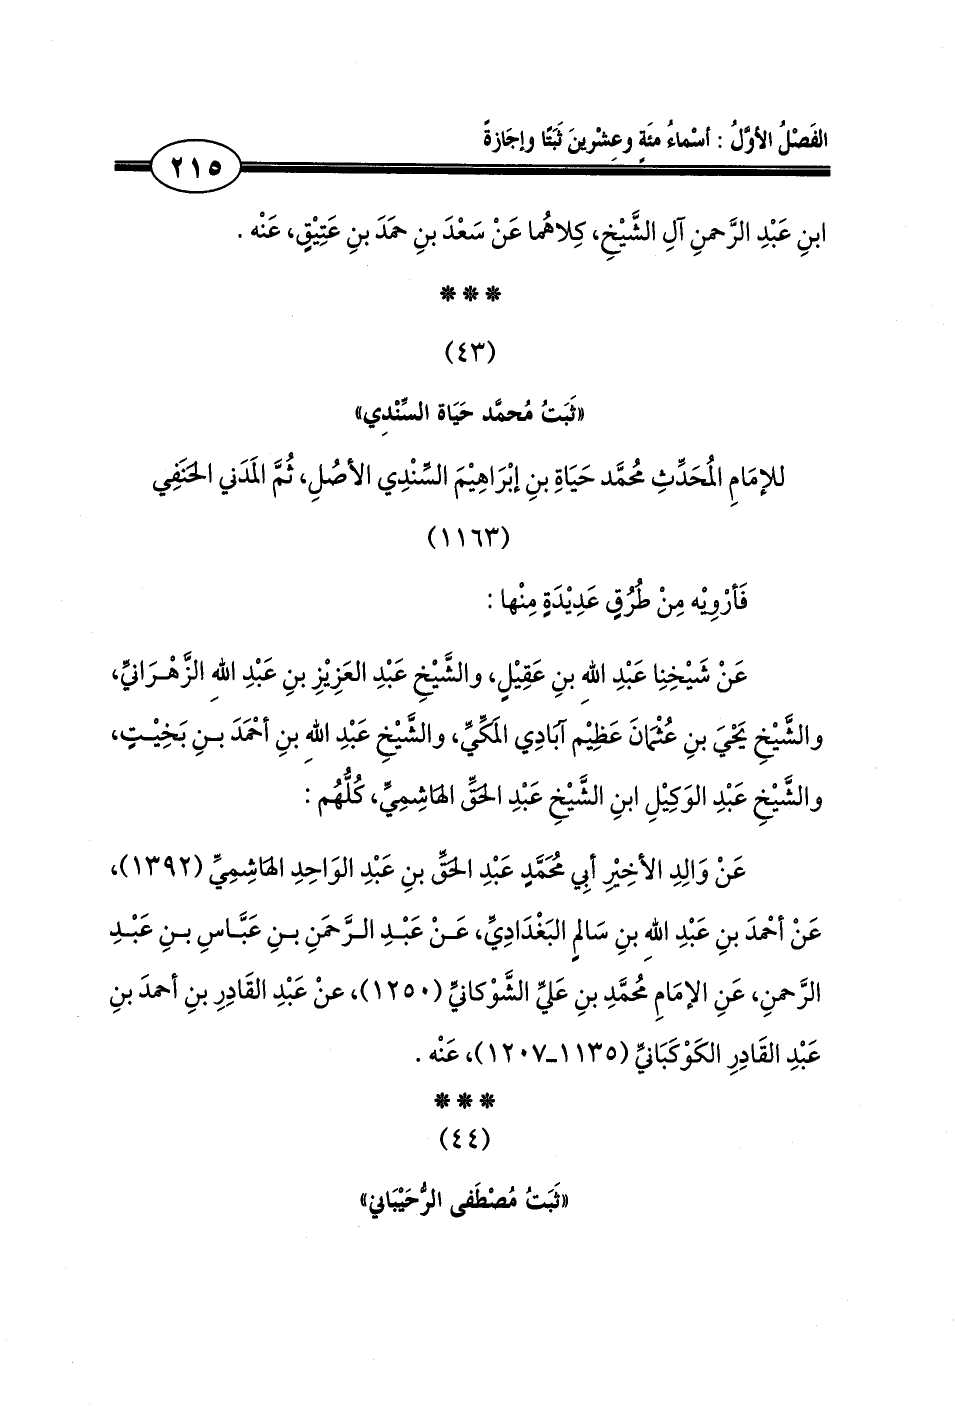 الفَصْلُ الأوَّلُ : أسْماءُ مئَةٍ وعِشْرينَ ثَبَتًا وإجَازةً
٢١٥
ابنِ عَبْدِ الرَّحمنِ آلِ الشَّيْخِ، كِلاهُما عَنْ سَعْدَ بنِ حمَدَ بنِ عَتِيْقٍ، عَنْه .
***
(٤٣)
«ثَبَتُ مُحمَّد حَيَاة السِّنْدِي»
للإمَامِ المُحَدِّثِ مُحمَّد حَيَاةِ بنِ إبْرَاهِيْمَ السِّنْدِي الأصْلِ، ثُمَّ المَدَني الحَنَفِي
(١١٦٣)
فَأرْوِيْه مِنْ طُرُقٍ عَدِيْدَةٍ مِنْها :
عَنْ شَيْخِنا عَبْدِ اللهِ بنِ عَقِيْلٍ، والشَّيْخِ عَبْدِ العَزِيْزِ بنِ عَبْدِ اللهِ الزَّهْرَانيِّ،
والشَّيْخِ يَحْيَ بنِ عُثْمَانَ عَظِيْم آبَادِي المَكِّيِّ، والشَّيْخِ عَبْدِ اللهِ بنِ أحْمَدَ بنِ بَخِيْتٍ،
والشَّيْخِ عَبْدِ الوَكِيْلِ ابنِ الشَّيْخِ عَبْدِ الحَقِّ الهَاشِمِيِّ، كُلُّهُم :
عَنْ وَالِدِ الأخِيْرِ أبي مُحَمَّدٍ عَبْدِ الحَقِّ بنِ عَبْدِ الوَاحِدِ الهَاشِمِيِّ (١٣٩٢)،
عَنْ أحْمَدَ بنِ عَبْدِ اللهِ بنِ سَالمٍ البَغْدَادِيِّ، عَنْ عَبْدِ الرَّحمَنِ بنِ عَبَّاسِ بنِ عَبْدِ
الرَّحمنِ، عَنِ الإمَامِ مُحمَّدِ بنِ عَليٍّ الشَّوْكانيِّ (١٢٥٠)، عنْ عَبْدِ القَادِرِ بنِ أحمدَ بنِ
عَبْدِ القَادِرِ الكَوْكَبَانيِّ (١١٣٥ـ١٢٠٧)، عَنْه .
***
(٤٤)
«ثَبَتُ مُصْطَفى الرُّحَيْبَانيِ»